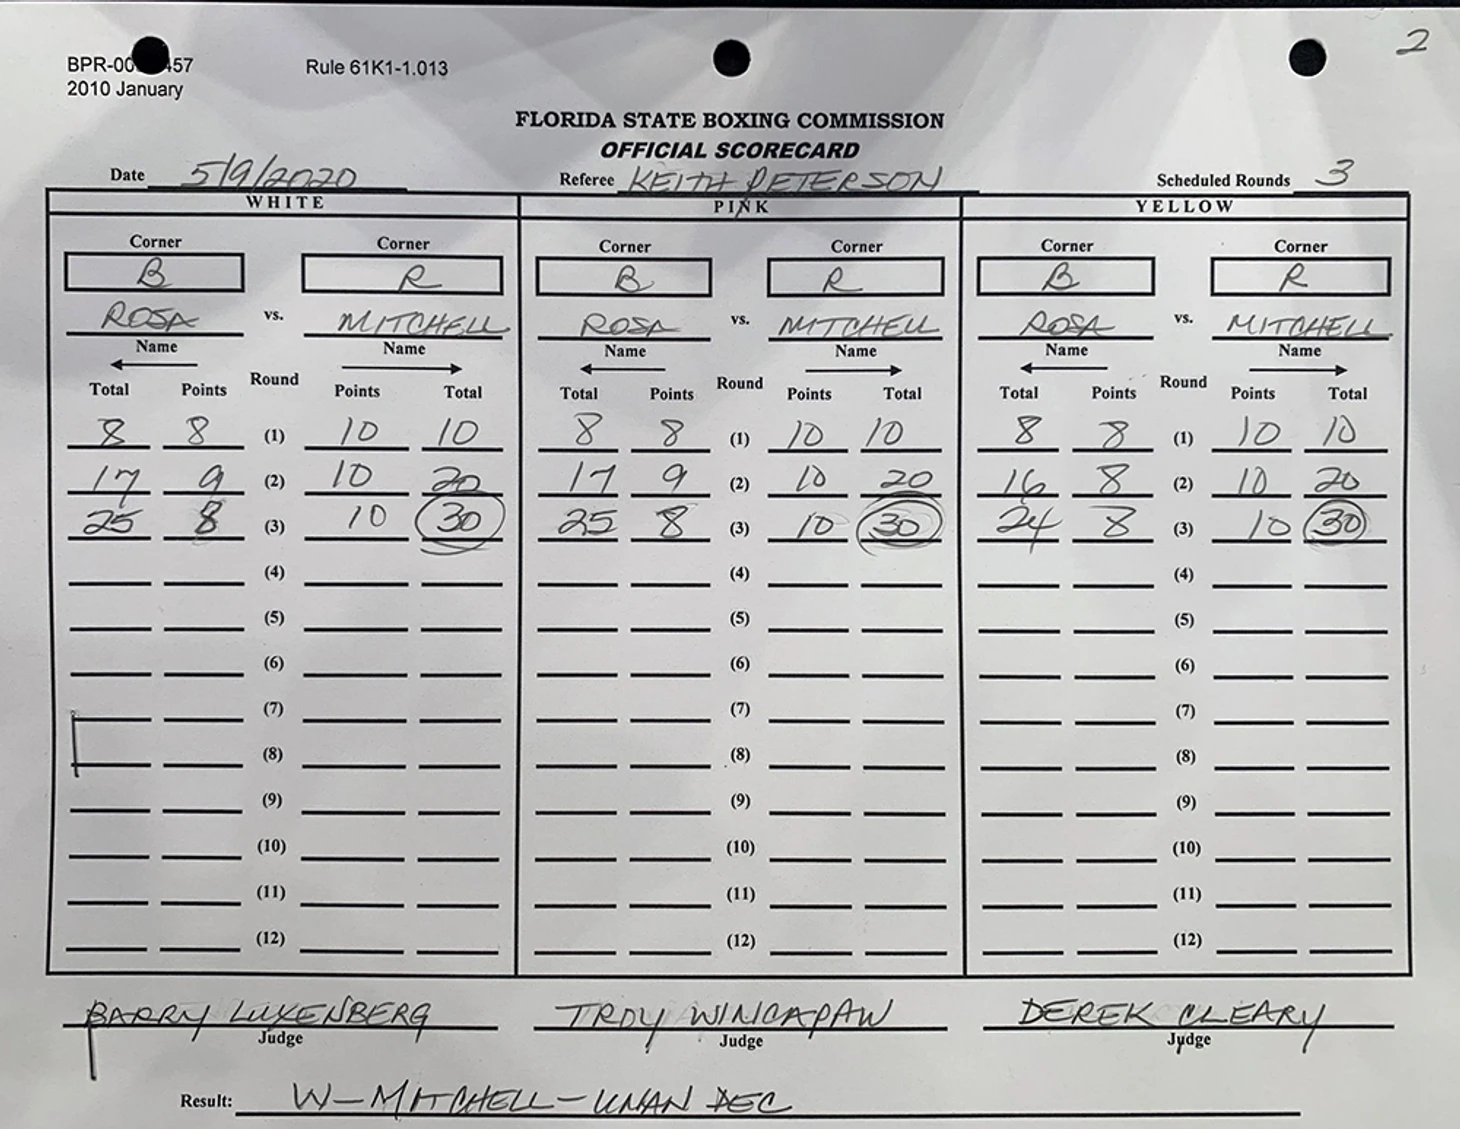 2
BPR-00 457 Rule 61K1-1.013
2010 January
FLORIDA STATE BOXING COMMISSION
OFFICIAL SCORECARD
Date 5/9/2020 Referee KEITH PETERSON Scheduled Rounds 3
WHITE PINK YELLOW
Corner Corner Corner Corner Corner Corner
B R B R B R
ROSA vs. MITCHELL ROSA vs. MITCHELL ROSA vs. MITCHELL
Name Name Name Name Name Name
Total Points Round Points Total Total Points Round Points Total Total Points Round Points Total
8 8 (1) 10 10 8 8 (1) 10 10 8 8 (1) 10 10
17 9 (2) 10 20 17 9 (2) 10 20 16 8 (2) 10 20
25 8 (3) 10 30 25 8 (3) 10 30 24 8 (3) 10 30
(4) (4) (4)
(5) (5) (5)
(6) (6) (6)
(7) (7) (7)
(8) (8) (8)
(9) (9) (9)
(10) (10) (10)
(11) (11) (11)
(12) (12) (12)
BARRY LUXENBERG TROY WINCAPAW DEREK CLEARY
Judge Judge Judge
Result: W-MITCHELL-UNAN DEC